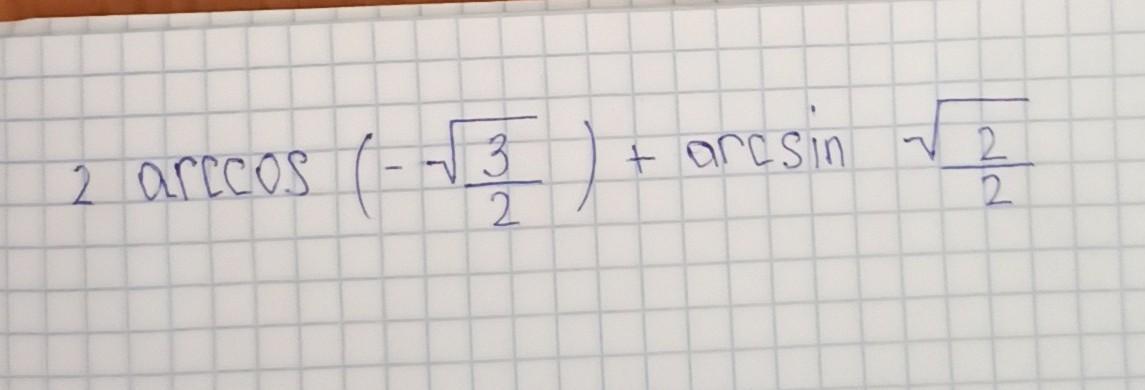 2 arccos (-√3/2) + arcsin √2/2